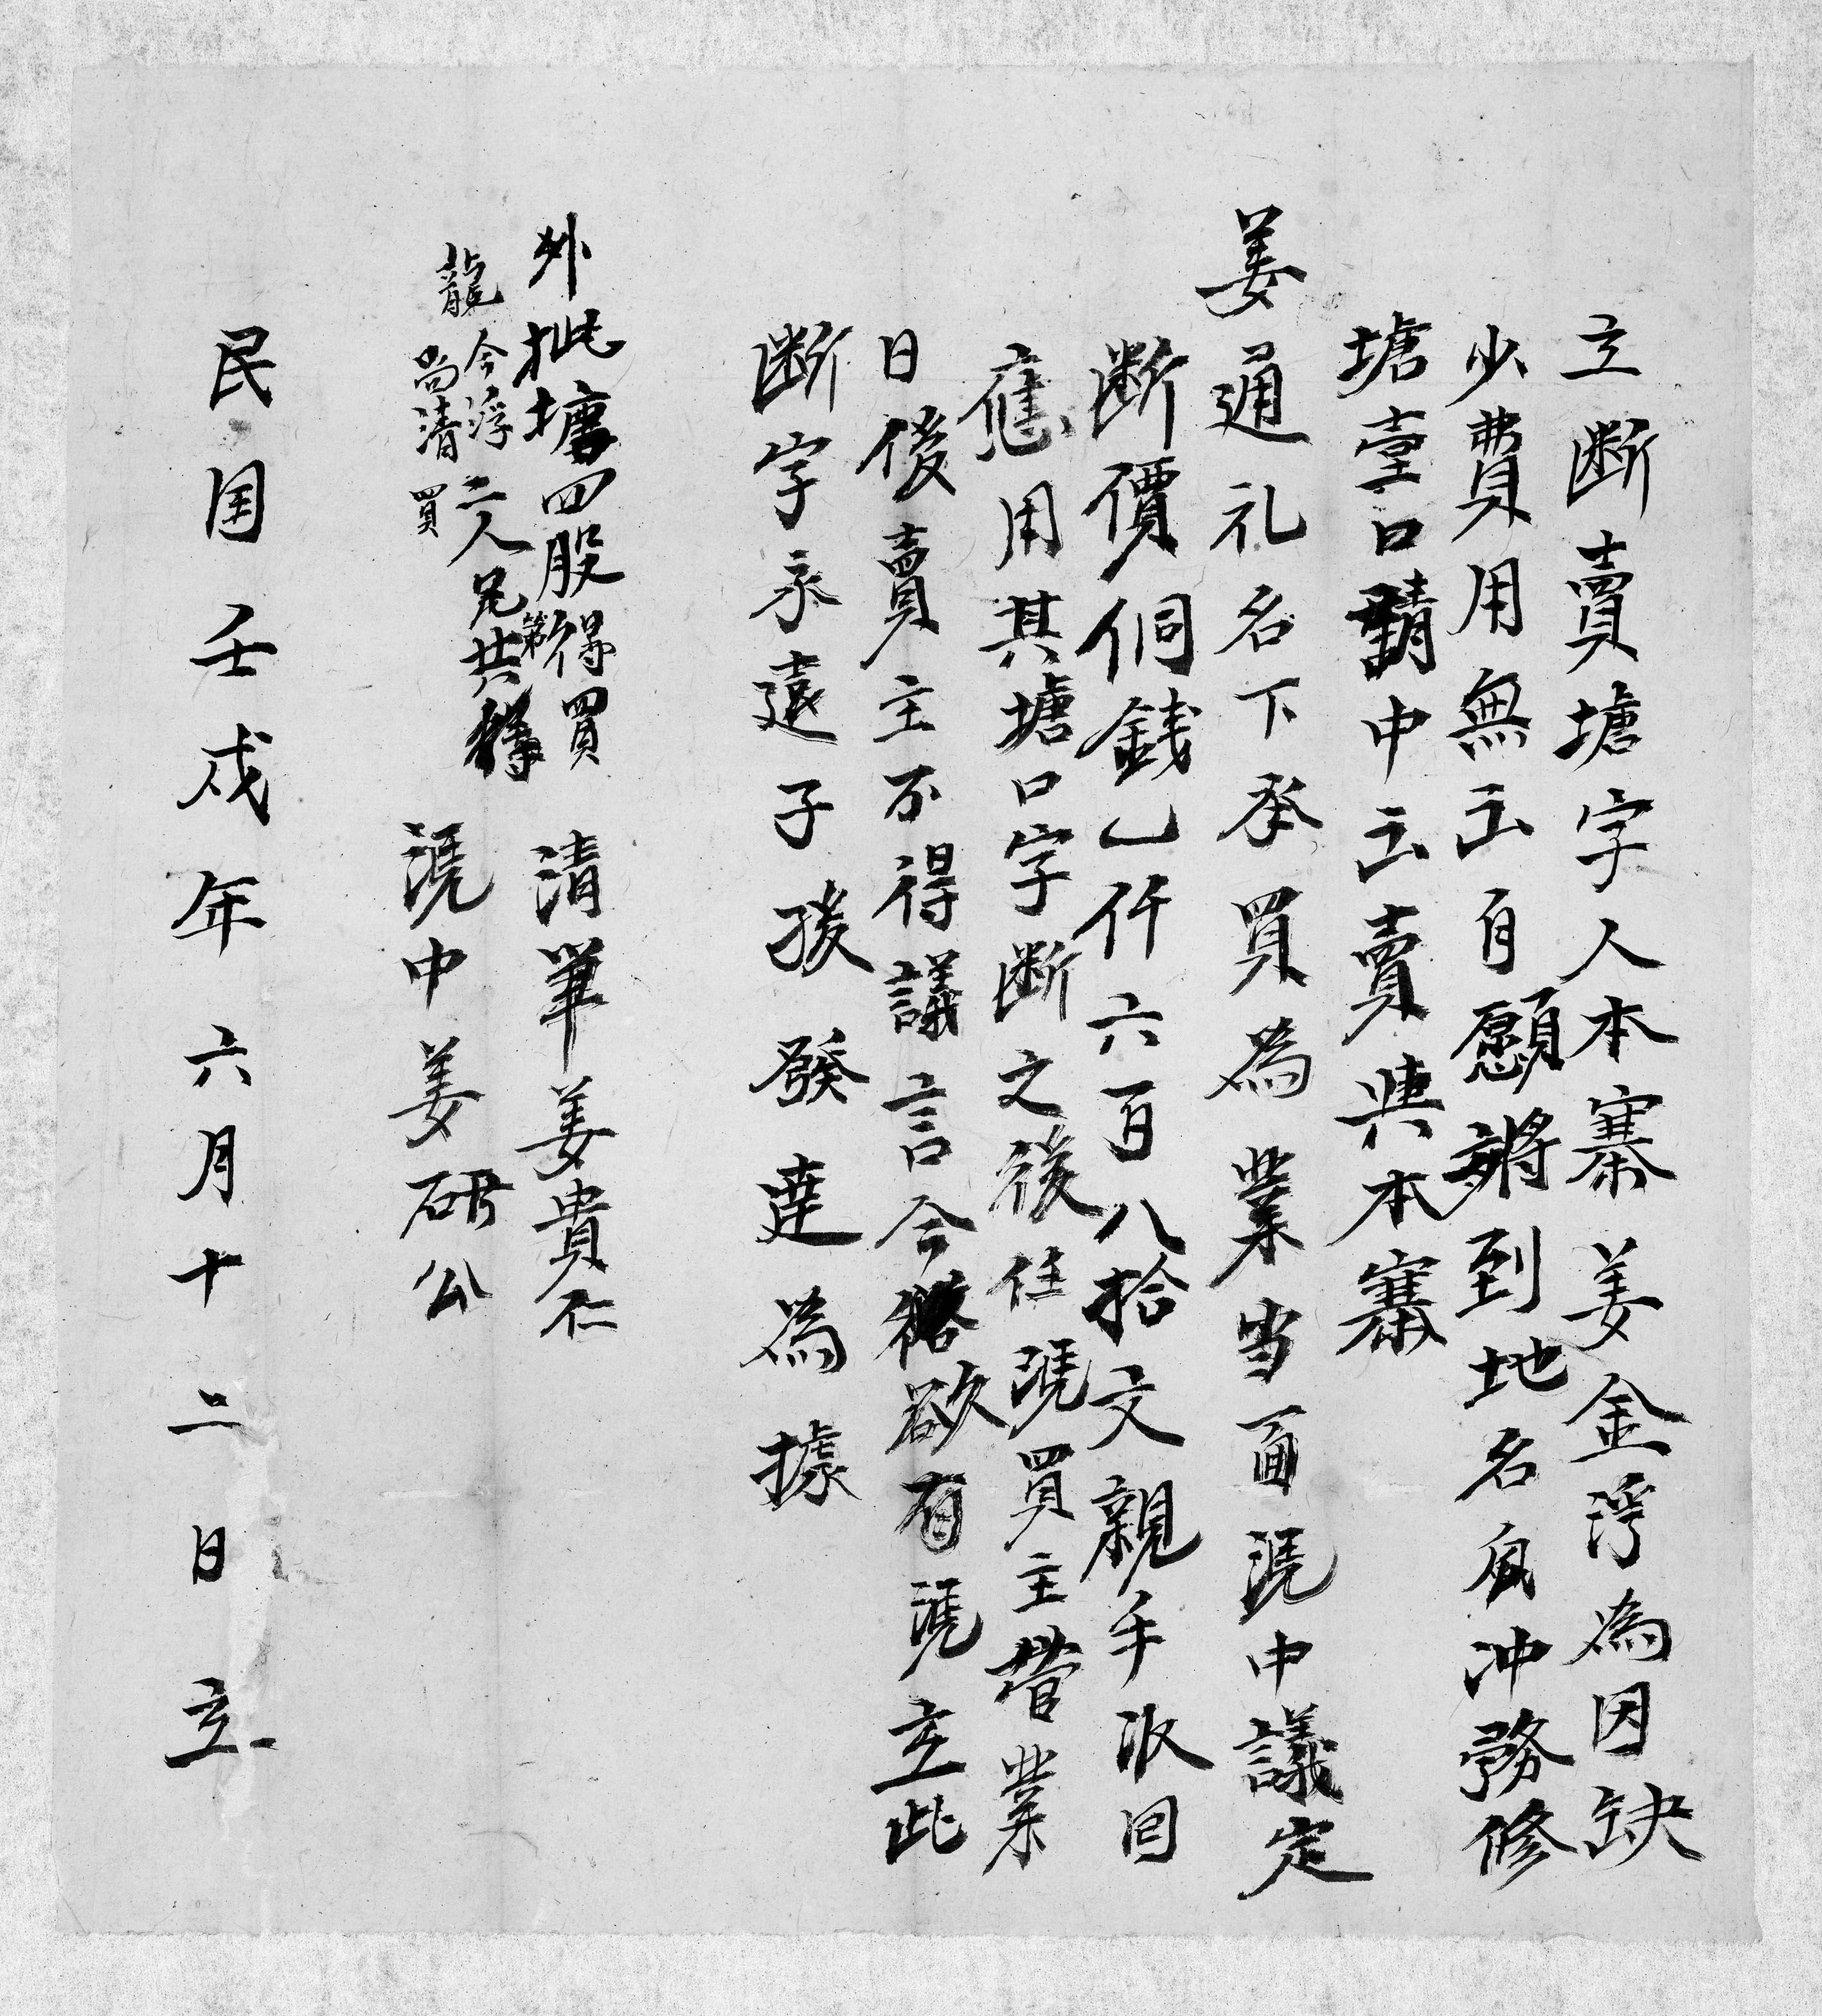 立断賣塘字人本寨姜金浮為因缺
少費用無出自愿將到地名瓜冲務修
塘壹口請中出賣與本寨
姜通礼名下承買為業当面凴中議定
断價侗錢乚仟六百八拾文親手收回
應用其塘口字断之後任凴買主管業
日後賣主不得議言今欲有凴立此
断字永遠子孫發達為據
外批塘四股得買 清筆姜貴仁
龍今浮尚清二人兄弟共 買 凴中姜研公
民囯壬戍年六月十二日立